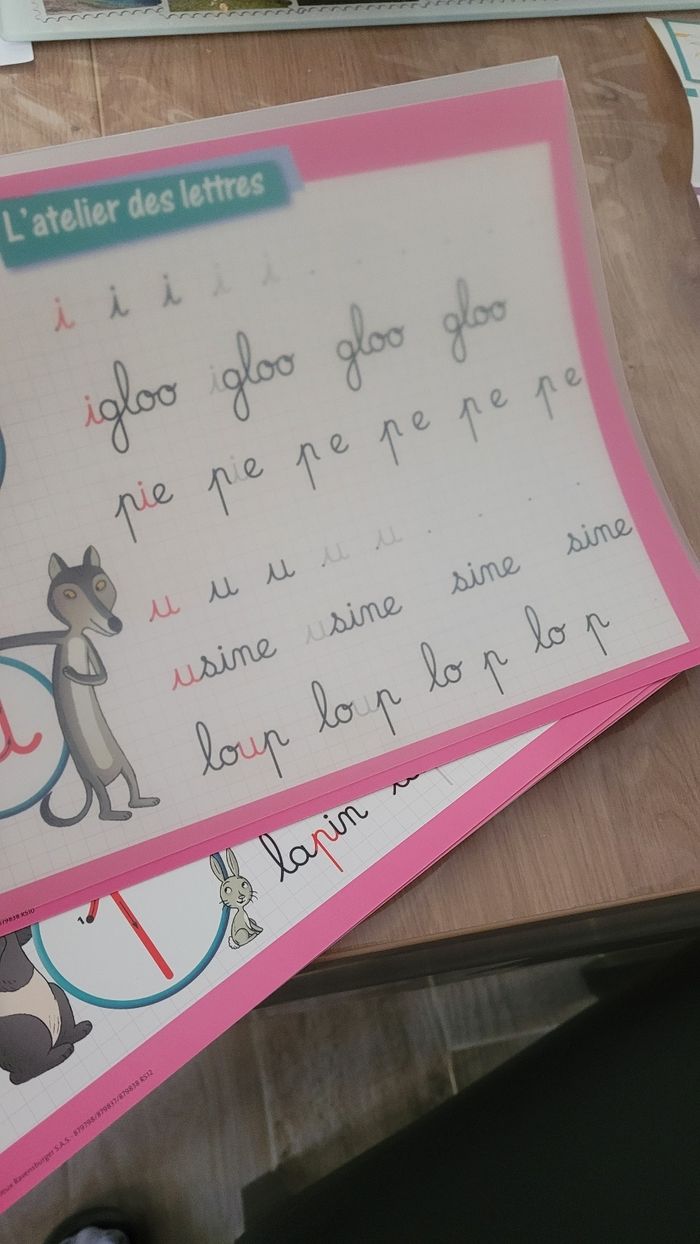 L'atelier des lettres
i i i i i
igloo igloo gloo gloo
pie pie p e p e p e p e
u u u u u
usine usine sine sine
loup loup lo p lo p
lapin
1
879838 RS10
Ravensburger S.A.S. - 879798/879837/879838 RS12